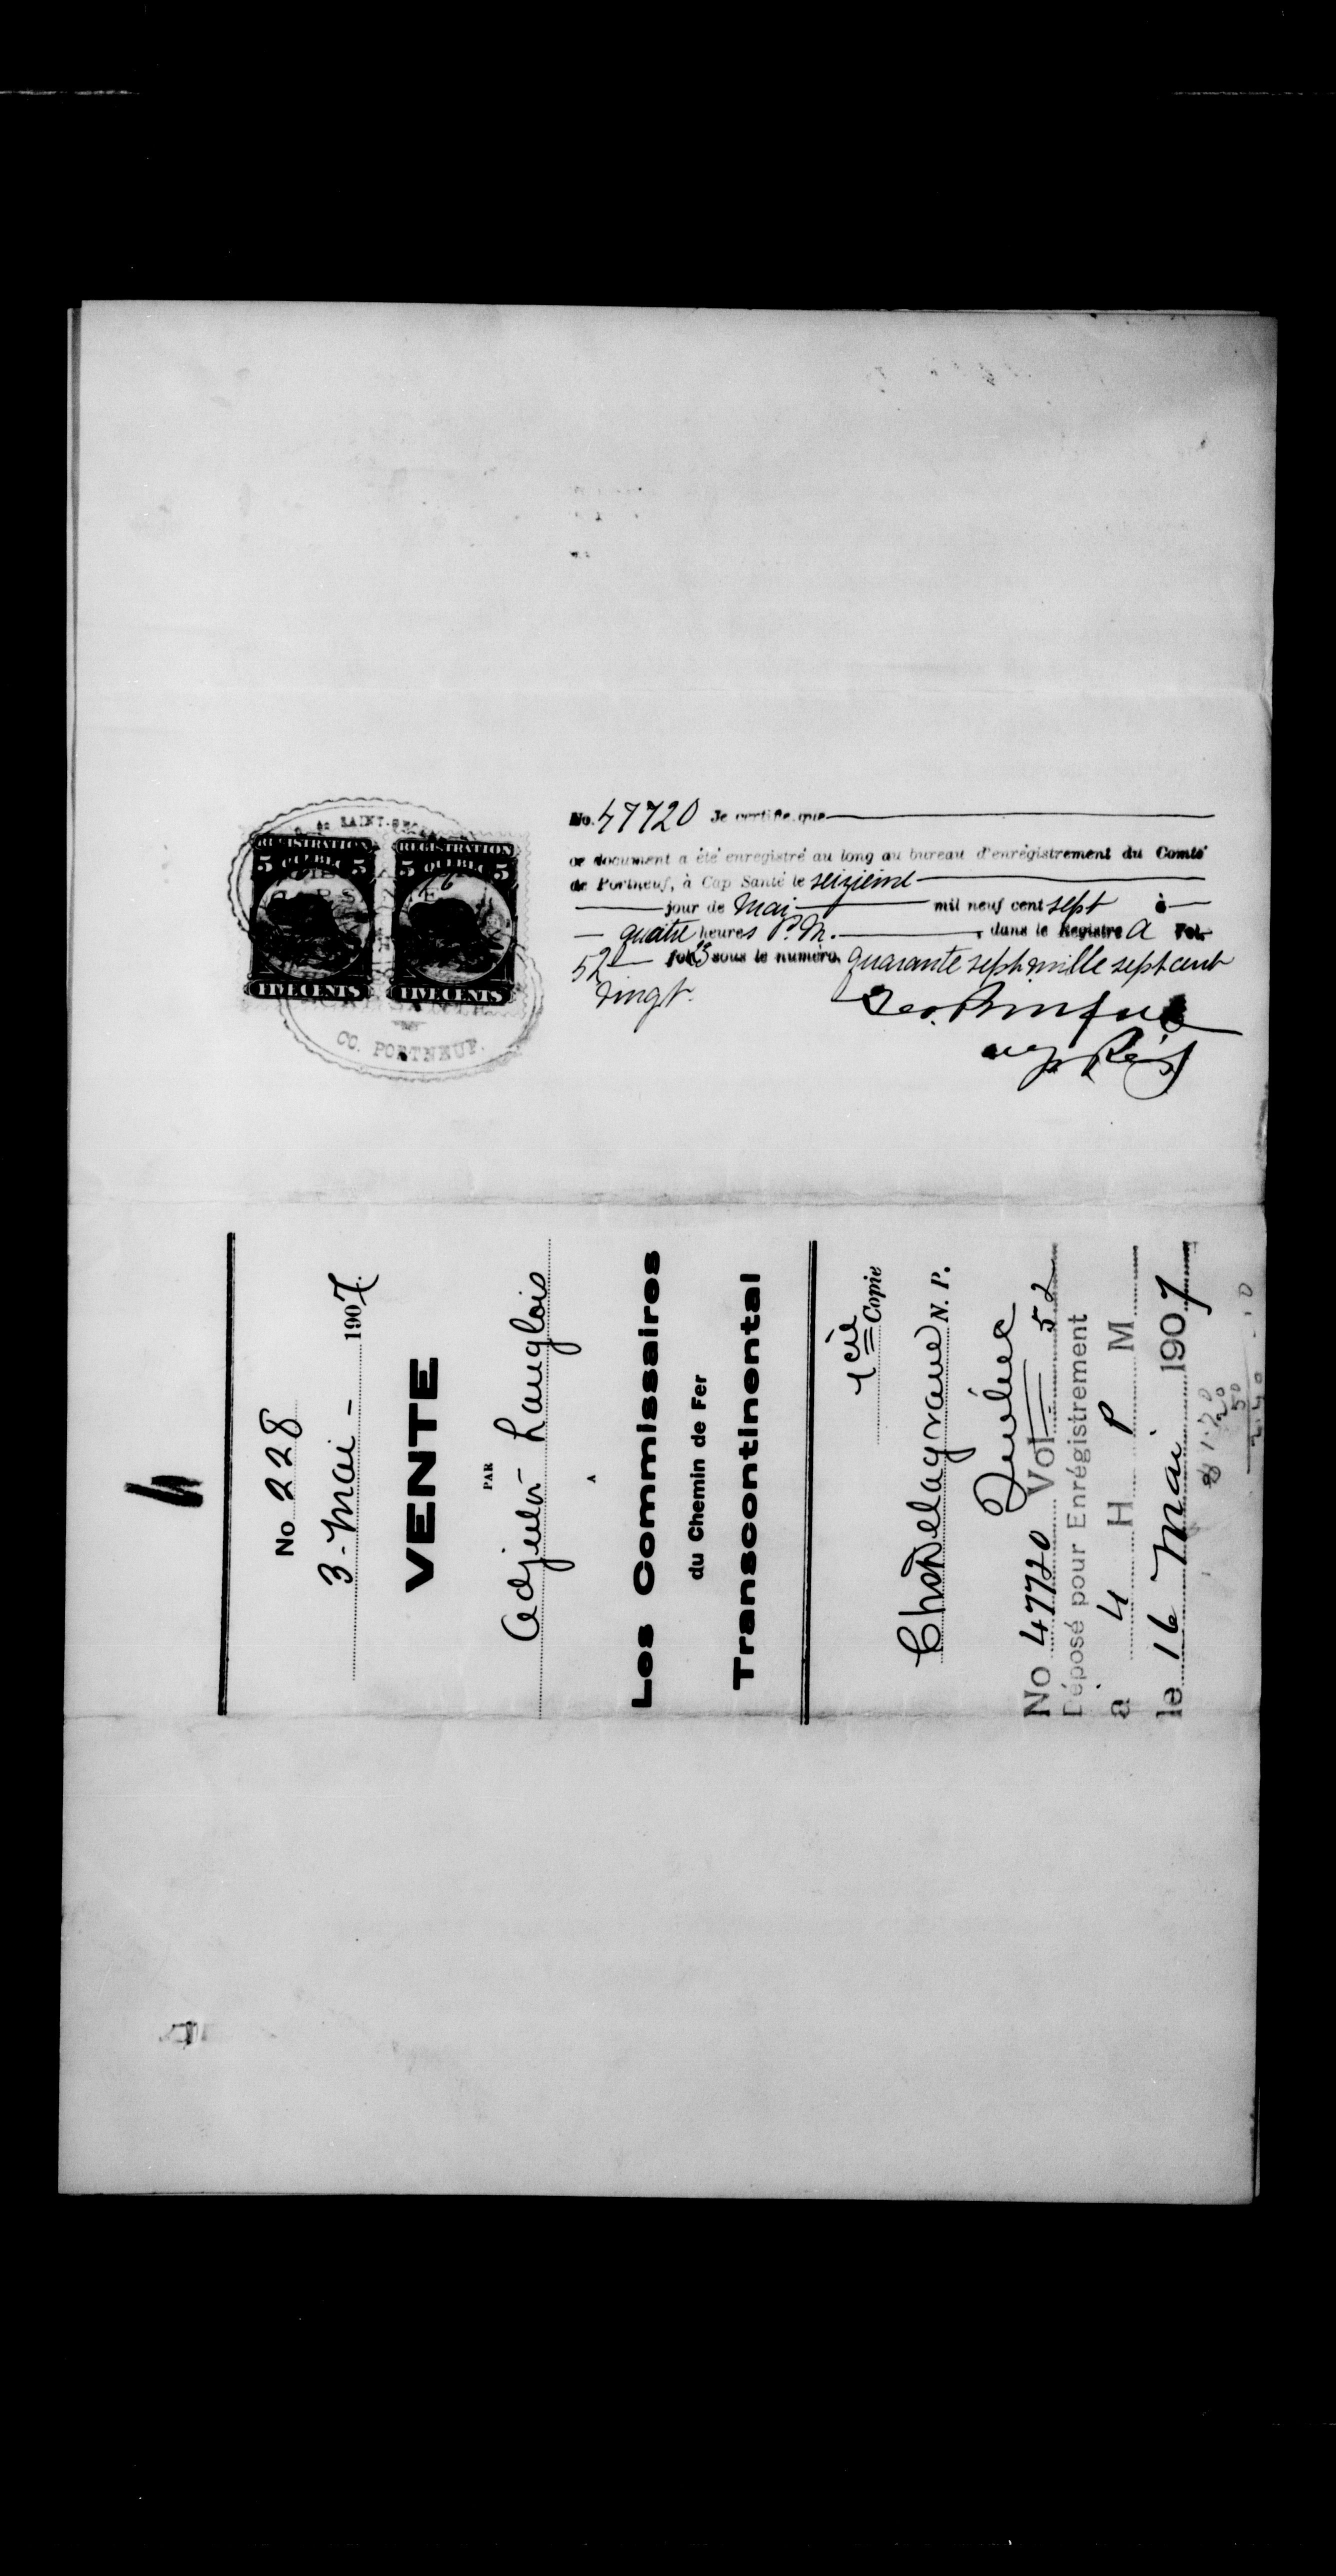 No. 47720 Je certifie que
ce document a été enregistré au long au bureau d'enrégistrement du Comté
de Portneuf, à Cap Santé le seizieme
jour de Mai mil neuf cent sept à
quatre heures P.M. , dans le Registre A Vol.
52 sous le numéro, quarante sept mille sept cent
vingt.
REGISTRATION
5 QUEBEC 5
FIVE CENTS
REGISTRATION
5 QUEBEC 5
FIVE CENTS
CO. PORTNEUF.
No 228
3 - Mai - 1907.
VENTE
PAR
Adjutor Langlois
A
Les Commissaires
du Chemin de Fer
Transcontinental
1ere Copie
Chs Delagrave N. P.
Québec
No 47720 Vol 52
Déposé pour Enrégistrement
a 4 H P M
le 16 Mai 1907